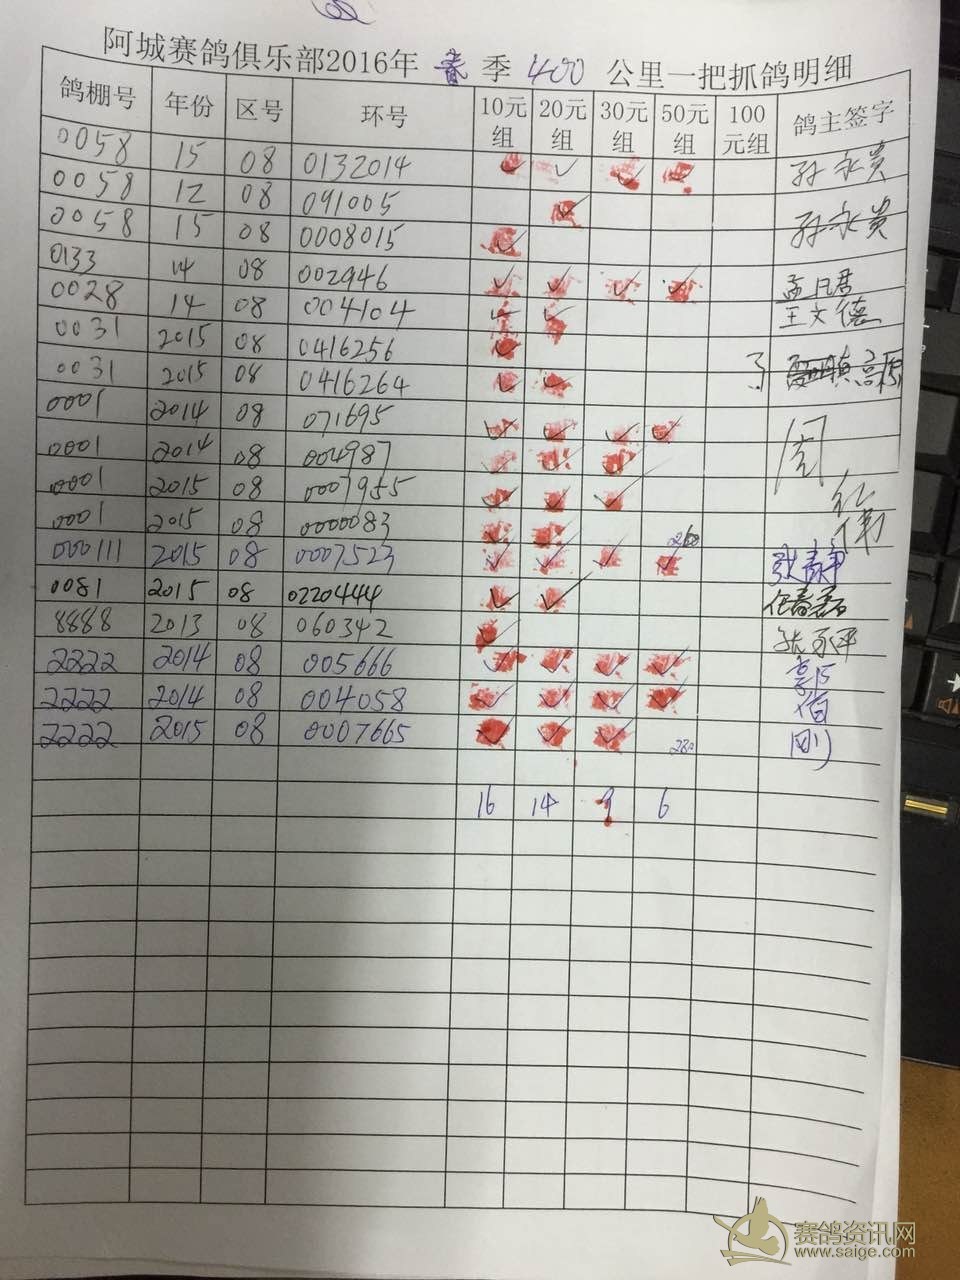 阿城赛鸽俱乐部2016年 春 季 400 公里一把抓鸽明细
鸽棚号 年份 区号 环号 10元组 20元组 30元组 50元组 100元组 鸽主签字
0058 15 08 0132014 ✓ ✓ ✓ ✓ 孙永贵
0058 12 08 091005 ✓
0058 15 08 0008015 ✓ 孙永贵
0133 14 08 002946 ✓ ✓ ✓ ✓ 孟凡君
0028 14 08 004104 ✓ ✓ 王文德
0031 2015 08 0416256 ✓
0031 2015 08 0416264 ✓ ✓
0001 2014 08 071695 ✓ ✓ ✓ ✓ 周
0001 2014 08 004987 ✓ ✓ ✓
0001 2015 08 0007955 ✓ ✓ ✓
0001 2015 08 0000083 ✓ ✓ 伟
000111 2015 08 0007523 ✓ ✓ ✓ ✓ 张春雨
0081 2015 08 0220444 ✓ ✓
8888 2013 08 060342 ✓
2222 2014 08 005666 ✓ ✓ ✓ ✓
2222 2014 08 004058 ✓ ✓ ✓ ✓
2222 2015 08 0007665 ✓ ✓ ✓ 刚
16 14 9 6
赛鸽资讯网
www.saige.com